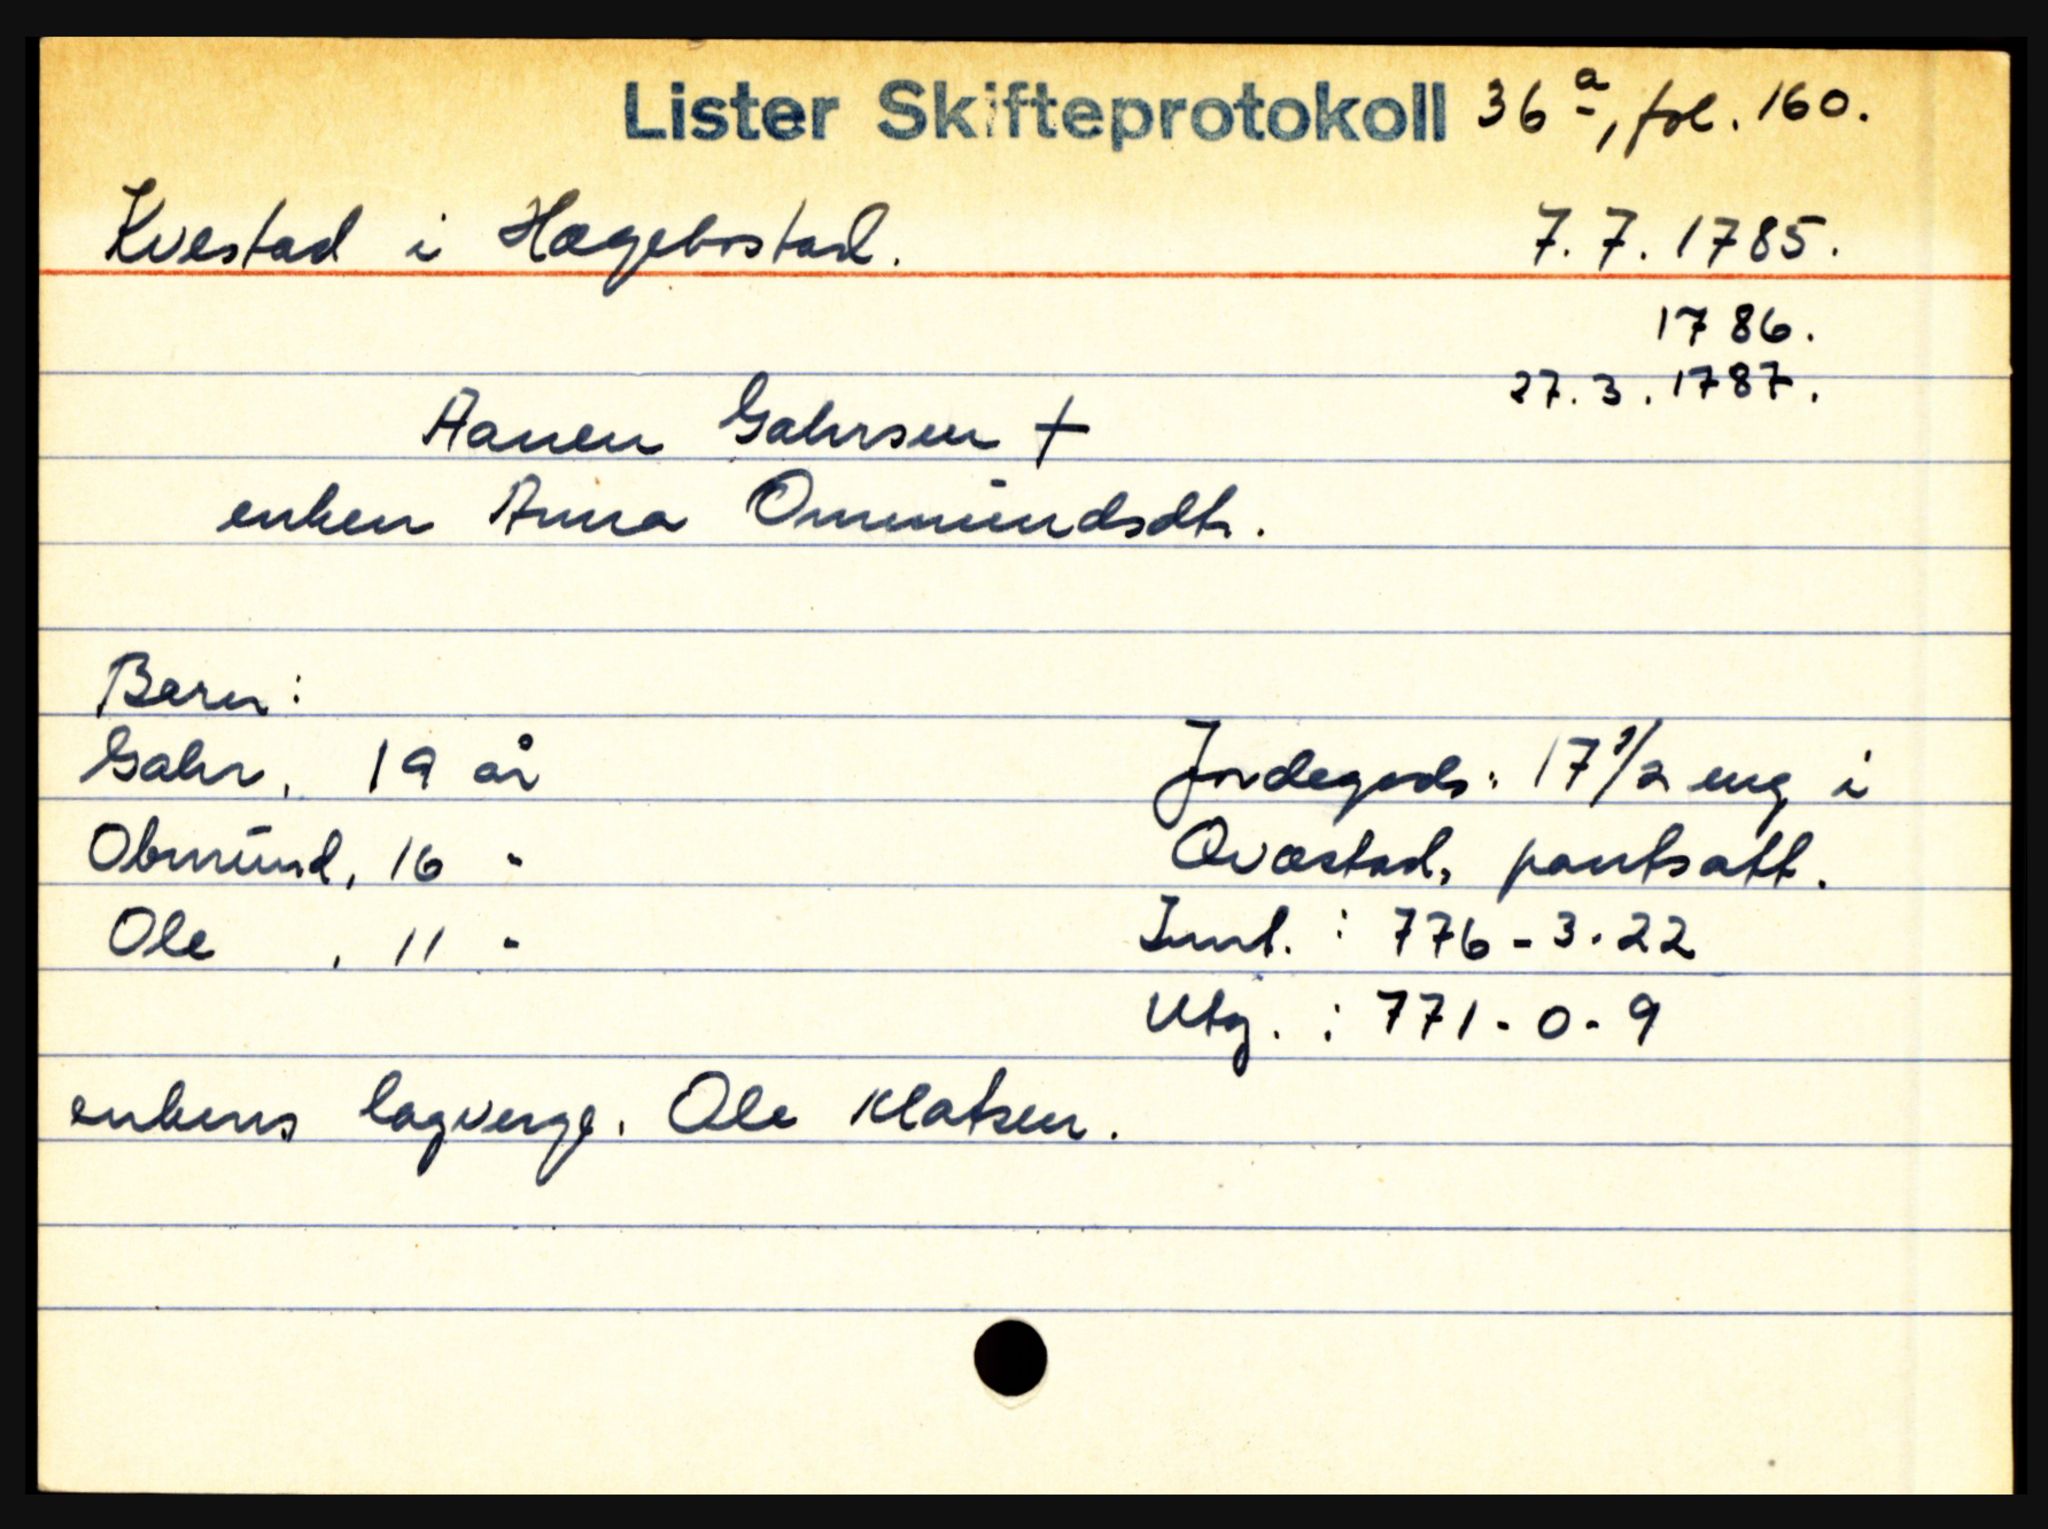 Lister Skifteprotokoll 36a, fol. 160.
Kvestad i Hægebostad. 7.7.1785.
1786.
27.3.1787.
Aanen Gahrsen †
enken Anna Ommündsdtr.
Barn:
Gahr, 19 år
Jordegods: 17 1/2 eng i
Obmünd, 16 "
Qvæstad, pantsatt.
Ole, 11 "
Innt. : 776-3-22
Utg. : 771-0-9
enkens lagverge, Ole Klatsen.